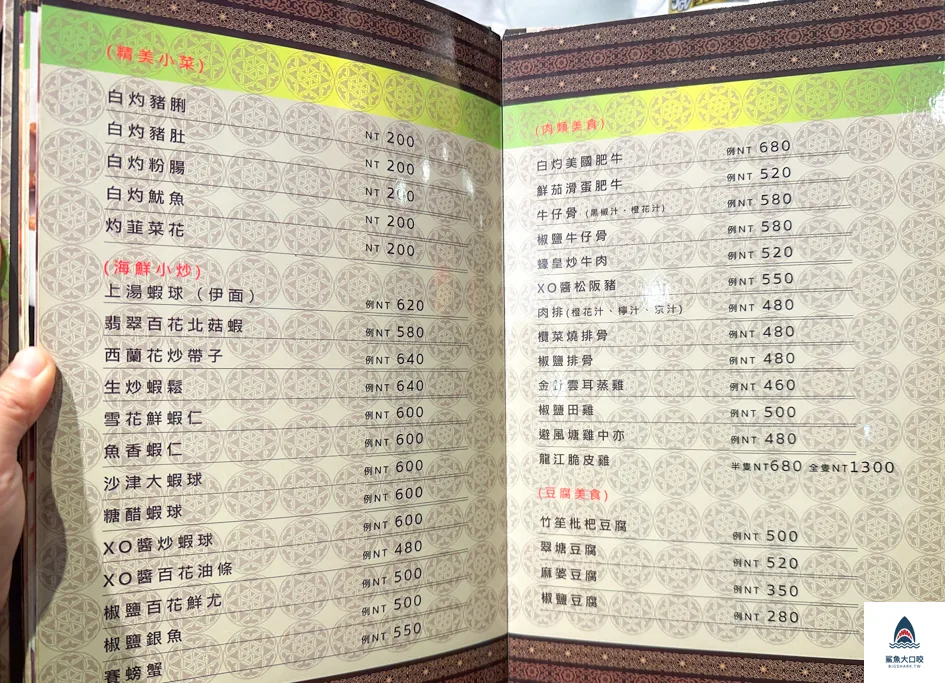 (精美小菜)
白灼豬脷 NT 200
白灼豬肚 NT 200
白灼粉腸 NT 200
白灼魷魚 NT 200
灼韮菜花 NT 200
(海鮮小炒)
上湯蝦球（伊面） 例NT 620
翡翠百花北菇蝦 例NT 580
西蘭花炒帶子 例NT 640
生炒蝦鬆 例NT 640
雪花鮮蝦仁 例NT 600
魚香蝦仁 例NT 600
沙津大蝦球 例NT 600
糖醋蝦球 例NT 600
XO醬炒蝦球 例NT 600
XO醬百花油條 例NT 480
椒鹽百花鮮尤 例NT 500
椒鹽銀魚 例NT 500
賽螃蟹 例NT 550
(肉類美食)
白灼美國肥牛 例NT 680
鮮茄滑蛋肥牛 例NT 520
牛仔骨 (黑椒汁、橙花汁) 例NT 580
椒鹽牛仔骨 例NT 580
蠔皇炒牛肉 例NT 520
XO醬松阪豬 例NT 550
肉排(橙花汁、檸汁、京汁) 例NT 480
欖菜燒排骨 例NT 480
椒鹽排骨 例NT 480
金針雲耳蒸雞 例NT 460
椒鹽田雞 例NT 500
避風塘雞中亦 例NT 480
龍江脆皮雞 半隻NT680 全隻NT1300
(豆腐美食)
竹笙枇杷豆腐 例NT 500
翠塘豆腐 例NT 520
麻婆豆腐 例NT 350
椒鹽豆腐 例NT 280
鯊魚大口咬
BIGSHARK.TW